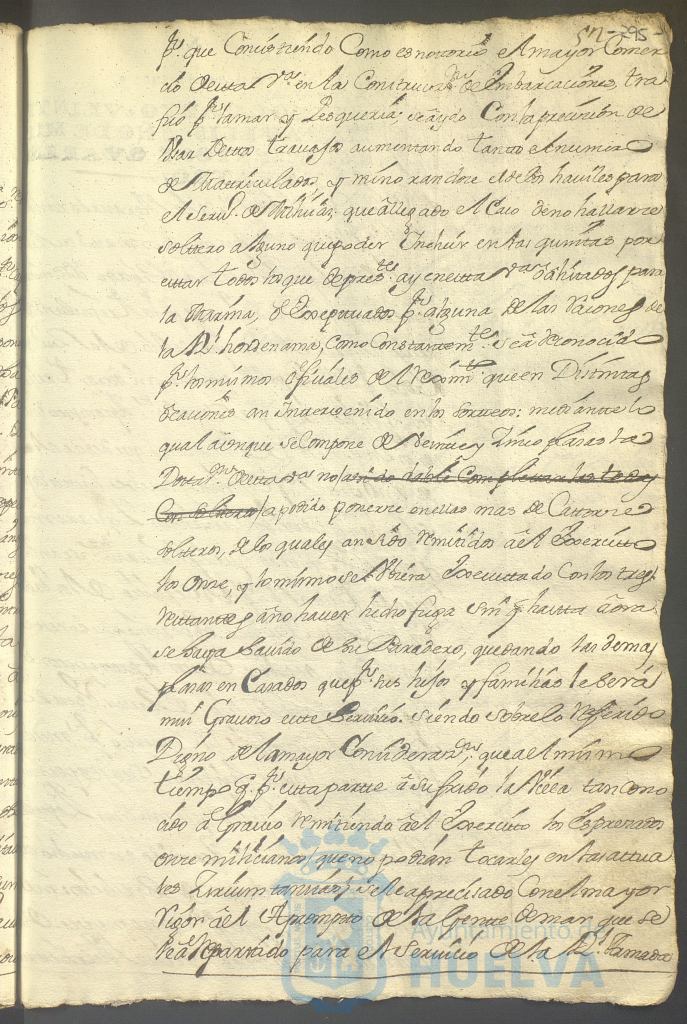 512-295-
pr. que Consistiendo Como es notorio el mayor Comer
cio de esta Va. en la Construcon. de Embarcaciones, tra
fico pr. la mar y Pesqueria, se a ydo Con la precision de
Usar de este travajo aumentando tanto el numero
de Matriculados, y minorandose el de los haviles para
el Serv. de Milicias que a llegado el Caso de no hallarse
soltero alguno que poder Incluir en las quintas por
estar todos los que de preste. ay en esta Va. alistados para
la Marina, o Exceptuados pr. alguna de las razones de
la Rl. hordenansa, como Constantemte. se a reconocido
pr. los mismos oficiales de el Reximto. que en Distintas
ocaciones an Intervenido en los sorteos: mediante lo
qual aunque se Compone de Veinte y Zinco plasas la
Dotaon. de esta Va. no ha sido dable Completarlas todas
Con solteros ha podido ponerse en ellas mas de Catorse
solteros, de los quales an sido remitidos a el Exercito
los onse, y lo mismo se Ubiera Executado Con los tres
restantes a no haver hecho fuga sin q. hasta aora
se haya savido de su Paradero, quedando las demas
plasas en Casados que pr. sus hijos y familias le sera
mui Gravoso este Servicio. siendo sobre lo referido
Digno de la mayor Consideraon. que a el mismo
tiempo q. pr. esta parte a sufrido la Villa tan cono
cido a Gravio remitiendo a el Exercito los Espresados
onse milicianos (que no podian tocarles en las actua
les Zircunstancias) se le a precisado Con el mayor
rigor a el Apronpto de la Gente de mar que se
le a Repartido para el Servicio de la Rl. Armada
Ayuntamiento de
HUELVA